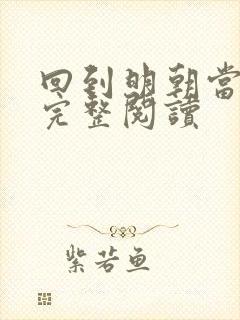 回到明朝當
完整閱讀
紫若鱼